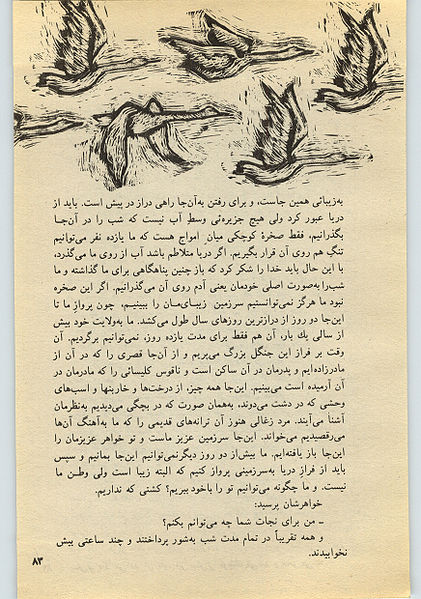 به‌زیبائی همین جاست، و برای رفتن به‌آن‌جا راهی دراز در پیش است. باید از
دریا عبور کرد ولی هیچ جزیره‌ئی وسطِ آب نیست که شب را در آن‌جا
بگذرانیم، فقط صخرهٔ کوچکی میان امواج هست که ما یازده نفر می‌توانیم
تنگِ هم روی آن قرار بگیریم. اگر دریا متلاطم باشد آب از روی ما می‌گذرد،
با این حال باید خدا را شکر کرد که باز چنین پناهگاهی برای ما گذاشته و ما
شب‌را به‌صورت اصلی خودمان یعنی آدم روی آن می‌گذرانیم. اگر این صخره
نبود ما هرگز نمی‌توانستیم سرزمین زیبای‌مان را ببینیم، چون پروازِ ما تا
این‌جا دو روز از درازترین روزهای سال طول می‌کشد. ما به‌ولایت خود بیش
از سالی یك بار، آن هم فقط برای مدت یازده روز، نمی‌توانیم برگردیم. آن
وقت بر فراز این جنگل بزرگ می‌پریم و از آن‌جا قصری را که در آن از
مادرزاده‌ایم و پدرمان در آن ساکن است و ناقوس کلیسائی را که مادرمان در
آن آرمیده است می‌بینیم. این‌جا همه چیز، از درخت‌ها و خاربنها و اسب‌های
وحشی که در دشت می‌دوند، به‌همان صورت که در بچگی می‌دیدیم به‌نظرمان
آشنا می‌آیند. مرد زغالی هنوز آن ترانه‌های قدیمی را که ما به‌آهنگ آن‌ها
می‌رقصیدیم می‌خواند. این‌جا سرزمین عزیز ماست و تو خواهر عزیزمان را
این‌جا باز یافته‌ایم. ما بیش‌از دو روز دیگرنمی‌توانیم این‌جا بمانیم و سپس
باید از فرازِ دریا به‌سرزمینی پرواز کنیم که البته زیبا است ولی وطن ما
نیست. و ما چگونه می‌توانیم تو را باخود ببریم؟ کشتی که نداریم.
خواهرشان پرسید:
ـ من برای نجات شما چه می‌توانم بکنم؟
و همه تقریباً در تمام مدت شب به‌شور پرداختند و چند ساعتی بیش
نخوابیدند.
۸۳